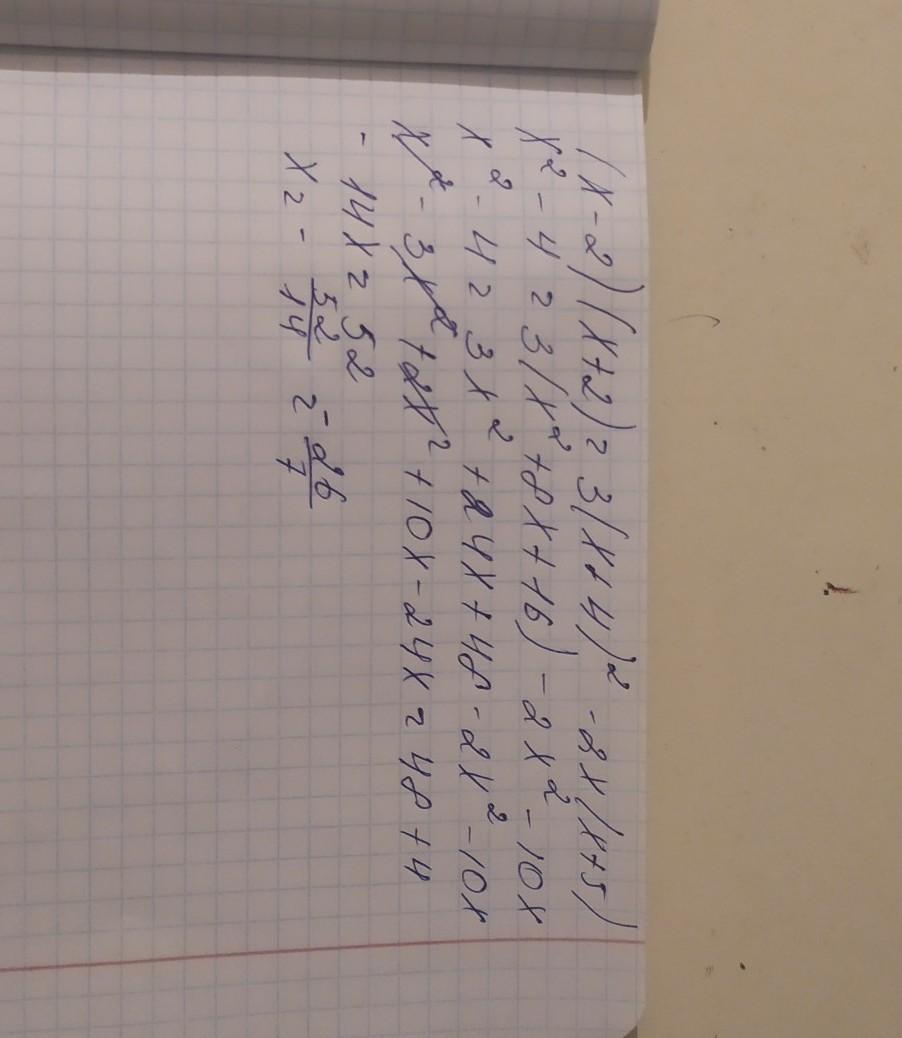 (x-2)(x+2)=3(x+4)² -2x(x+5)
x²-4 = 3(x²+8x+16)-2x²-10x
x²-4=3x²+24x+48-2x²-10x
x²-3x²+2x²+10x-24x=48+4
-14x=52
x=-52/14=-26/7